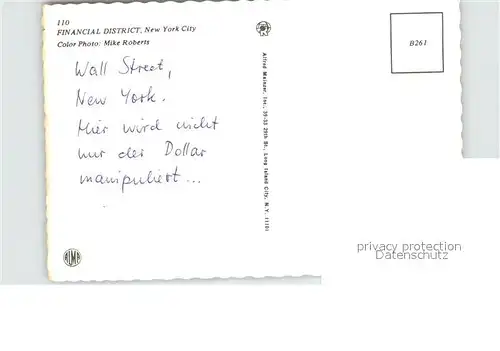 110
FINANCIAL DISTRICT, New York City
Color Photo: Mike Roberts
Wall Street,
New York.
Hier wird nicht
nur der Dollar
manipuliert...
Alfred Mainzer, Inc., 39-33 29th St., Long Island City, N. Y. 11101
B261
privacy protection
Datenschutz